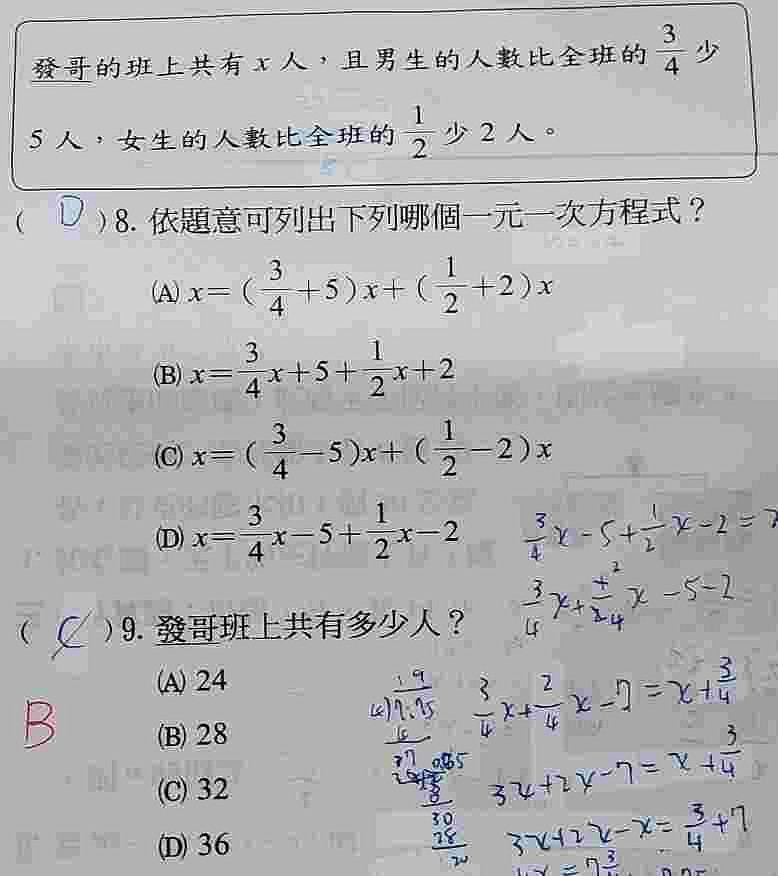 發哥的班上共有 x 人，且男生的人數比全班的 3/4 少
5 人，女生的人數比全班的 1/2 少 2 人。
( D ) 8. 依題意可列出下列哪個一元一次方程式？
(A) x=(3/4+5)x+(1/2+2)x
(B) x=3/4x+5+1/2x+2
(C) x=(3/4-5)x+(1/2-2)x
(D) x=3/4x-5+1/2x-2
3/4x-5+1/2x-2=
3/4x+ x-5-2
( C ) 9. 發哥班上共有多少人？
B
(A) 24
(B) 28
(C) 32
(D) 36
3/4x+2/4x-7=x+3/4
3x+2x-7=x+3/4
3x+2x-x=3/4+7
19
30
28